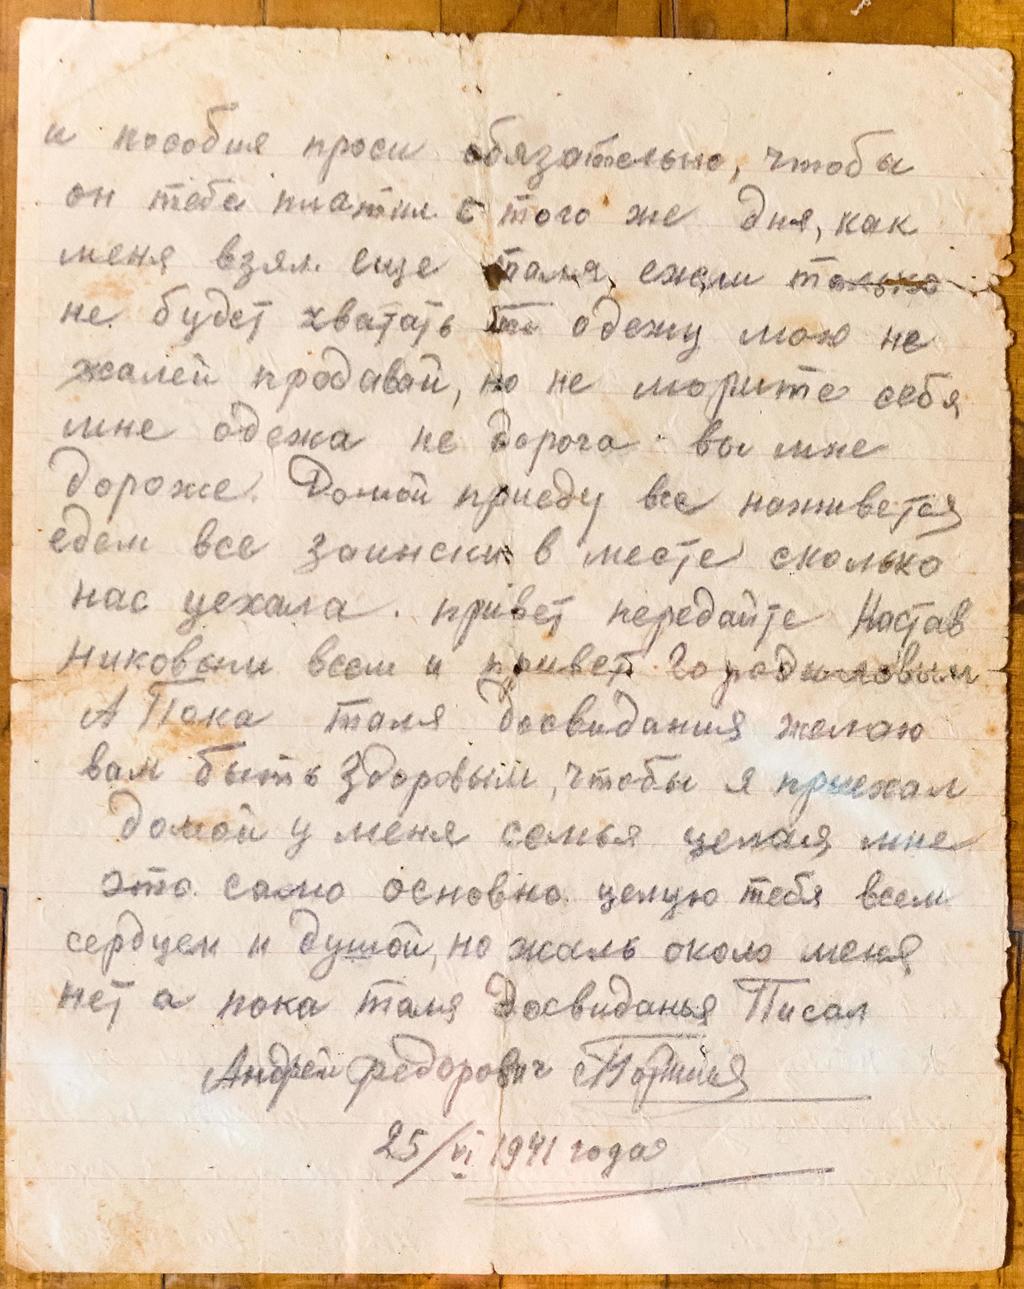 и пособия проси обязательно, чтобы
он тебе платил с того же дня, как
меня взял. еще таля, ежели только
не будет хватать то одежу мою не
жалей продавай, но не морите себя
мне одежа не дорога вы мне
дороже. Домой приеду все наживется
едем все заински в месте сколько
нас уехала. привет передайте Настав
никовым всем и привет Городиловым
А Пока таля Досвидания желаю
вам быть здоровым, чтобы я приехал
домой у меня семья целая, мне
это само основно целую тебя всем
сердцем и душой, но жаль около меня
нет а пока таля Досвиданья Писал
Андрей федорович
25/VI 1941 года